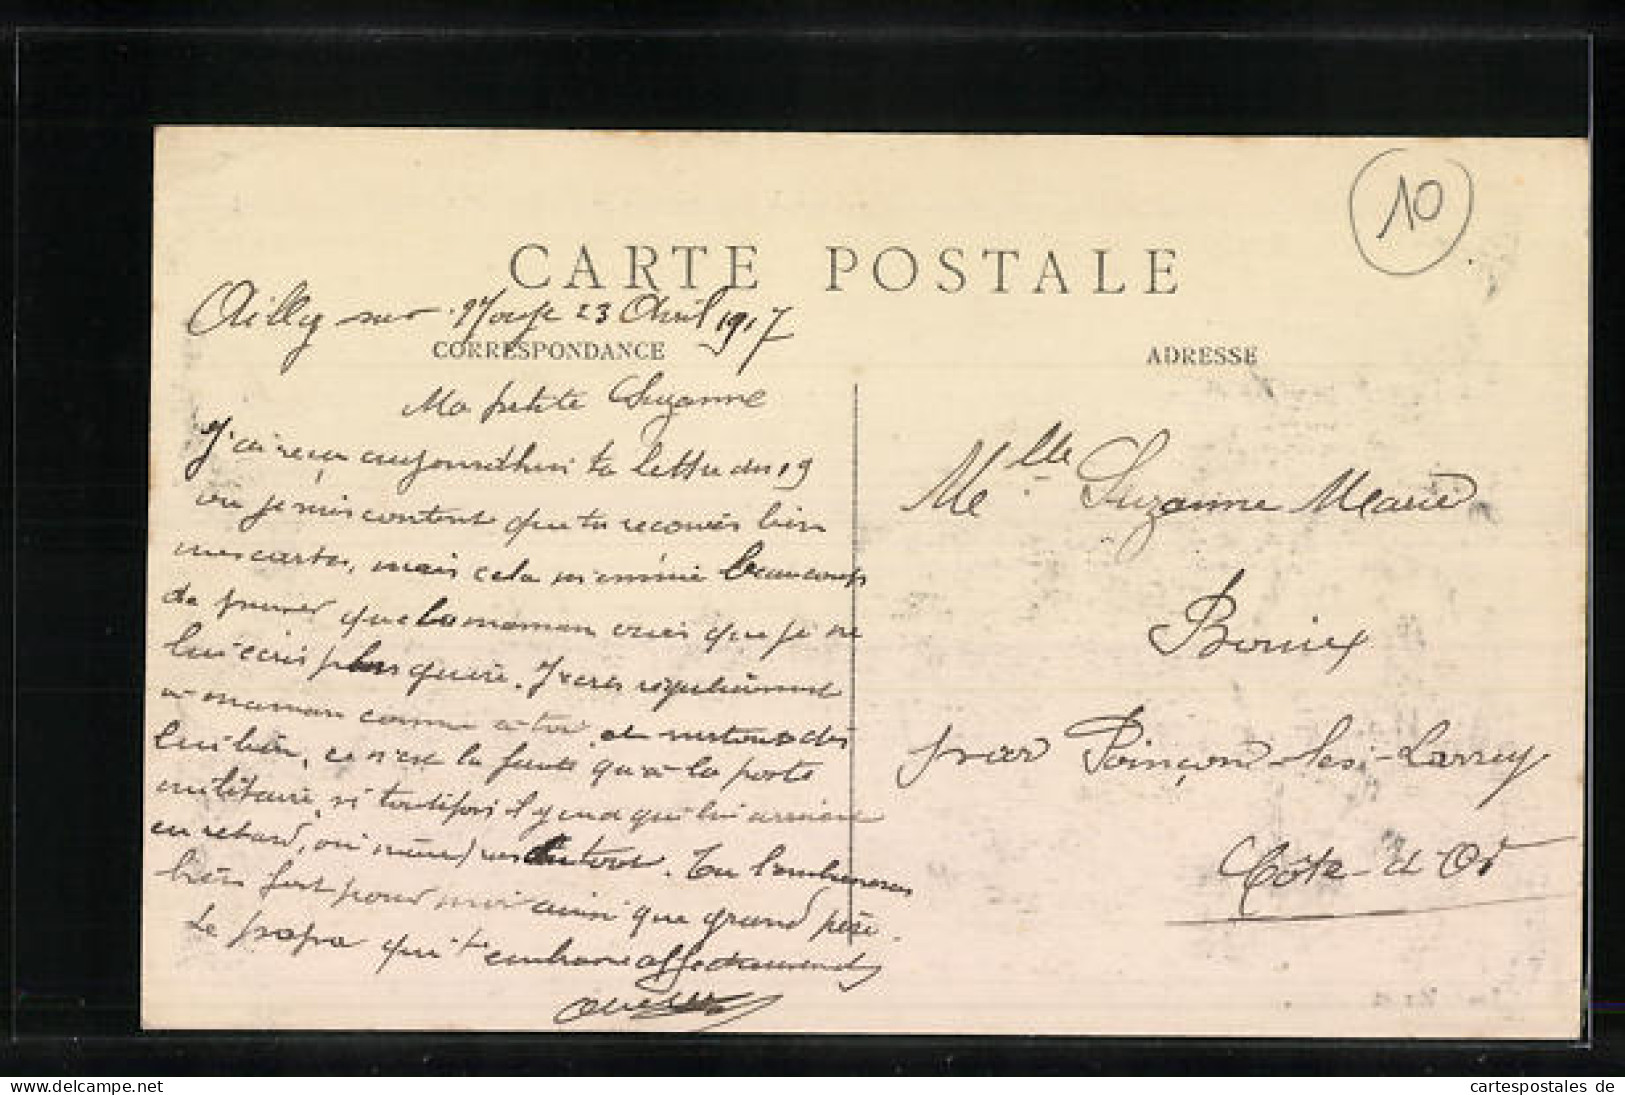 10
CARTE POSTALE
Ailly sur Noye 23 Avril 1917
CORRESPONDANCE
ADRESSE
Ma petite Suzanne
J'ai reçu aujourd'hui ta lettre du 19
ou je suis content que tu reçoives bien
mes cartes, mais cela m'ennuie beaucoup
de penser que la maman croies que je ne
lui écris plus guère. J'écris régulièrement
à maman comme à toi, et surtout dis
lui bien, ce n'est la faute qu'à la poste
militaire, si toutefois il y en a qui lui arrivent
en retard, ou même pas du tout. Tu l'embrasseras
bien fort pour moi ainsi que grand père.
Le papa qui t'embrasse affectueusement
Mlle Suzanne Marie
par Poinçon-les-Larrey
Côte-d'Or
www.delcampe.net
cartespostales de